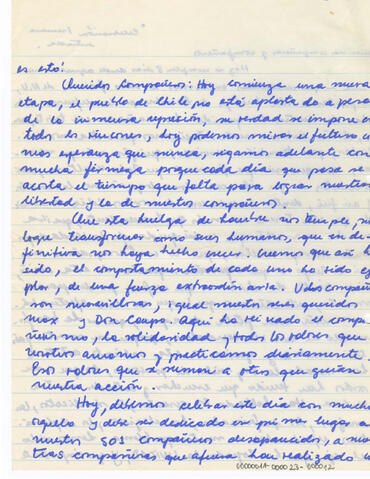 es esto:
Queridos Compañeros: Hoy comienza una nueva
etapa, el pueblo de Chile no está aplastado a pesar
de la inmensa represión, su verdad se impone en
todos los rincones, hoy podemos mirar el futuro con
más esperanza que nunca, sigamos adelante con
mucha firmeza porque cada día que pasa se
acorta el tiempo que falta para lograr nuestra
libertad y la de nuestros compañeros.
Que esta huelga de hambre nos temple, nos
logre transformar como seres humanos, que en de-
finitiva nos haya hecho crecer. Creemos que así ha
sido, el comportamiento de cada uno ha sido ejem
plar, de una fuerza extraordinaria. Uds compañeros
son maravillosos, igual nuestros queridos
Max y Don Campo. Aquí ha reinado el compa-
ñerismo, la solidaridad y todos los valores que
nosotros amamos y practicamos diariamente.
Esos valores que se suman a otros que guían
nuestra acción.
Hoy, debemos celebrar este día con mucho
orgullo y debe ser dedicado en primer lugar a
nuestros 505 compañeros desaparecidos, a nues
tras compañeras que afuera han realizado un
0000001A-000023-000012